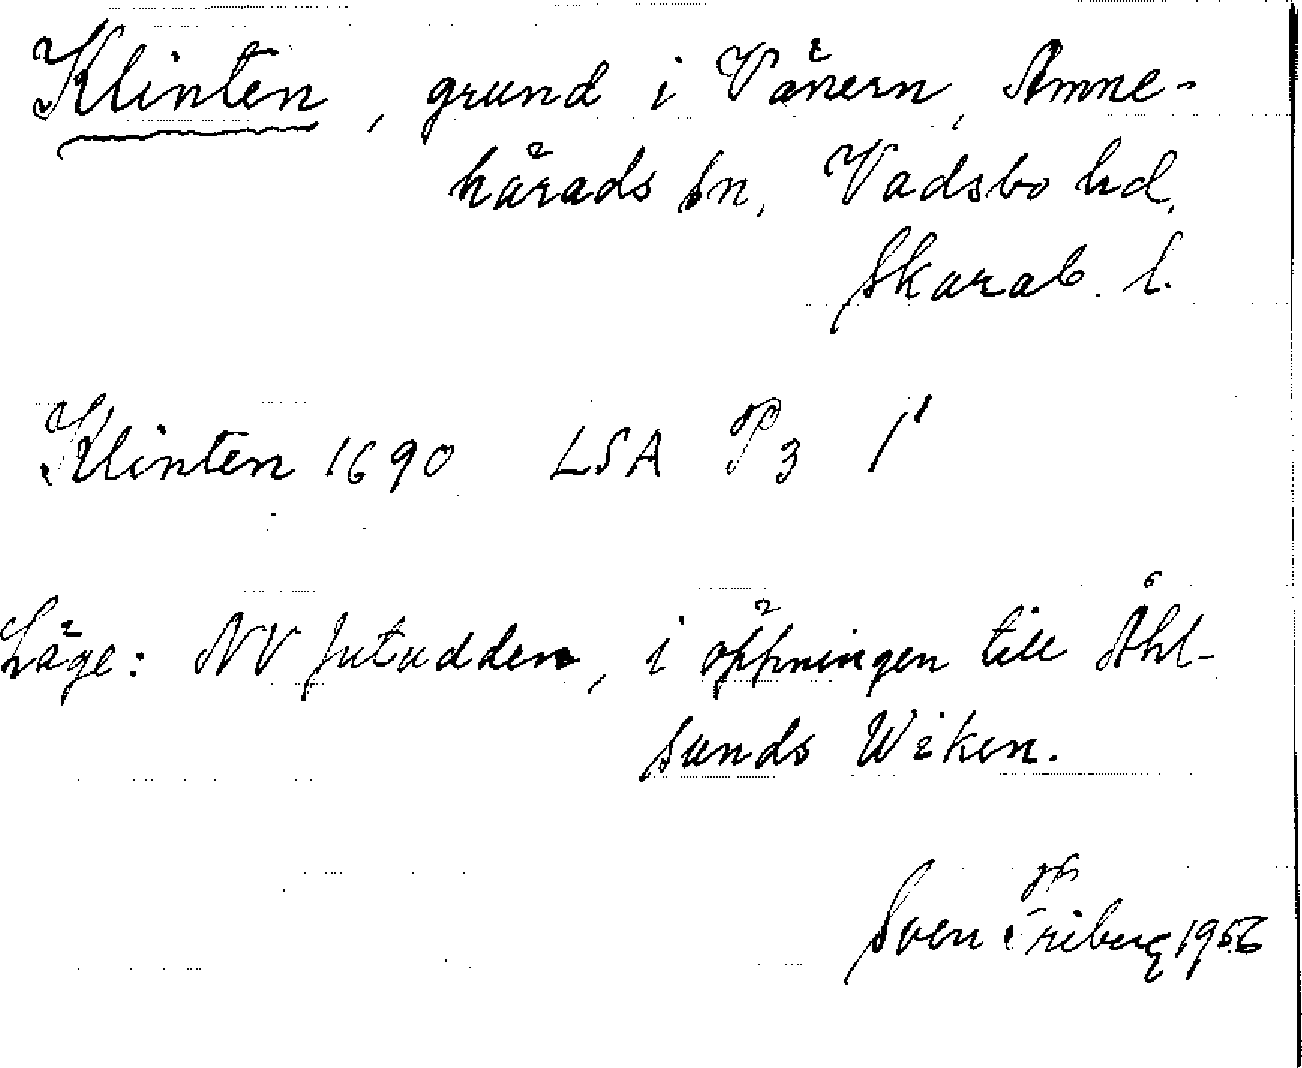 Klinten, grund i Vänern, Amne-
härads sn, Vadsbo hd,
Skarab. l.
Klinten 1690 LSA P3 1'
Läge: NV Jutudden, i öppningen till Åhl-
sunds Wiken.
Sven Friberg 1956